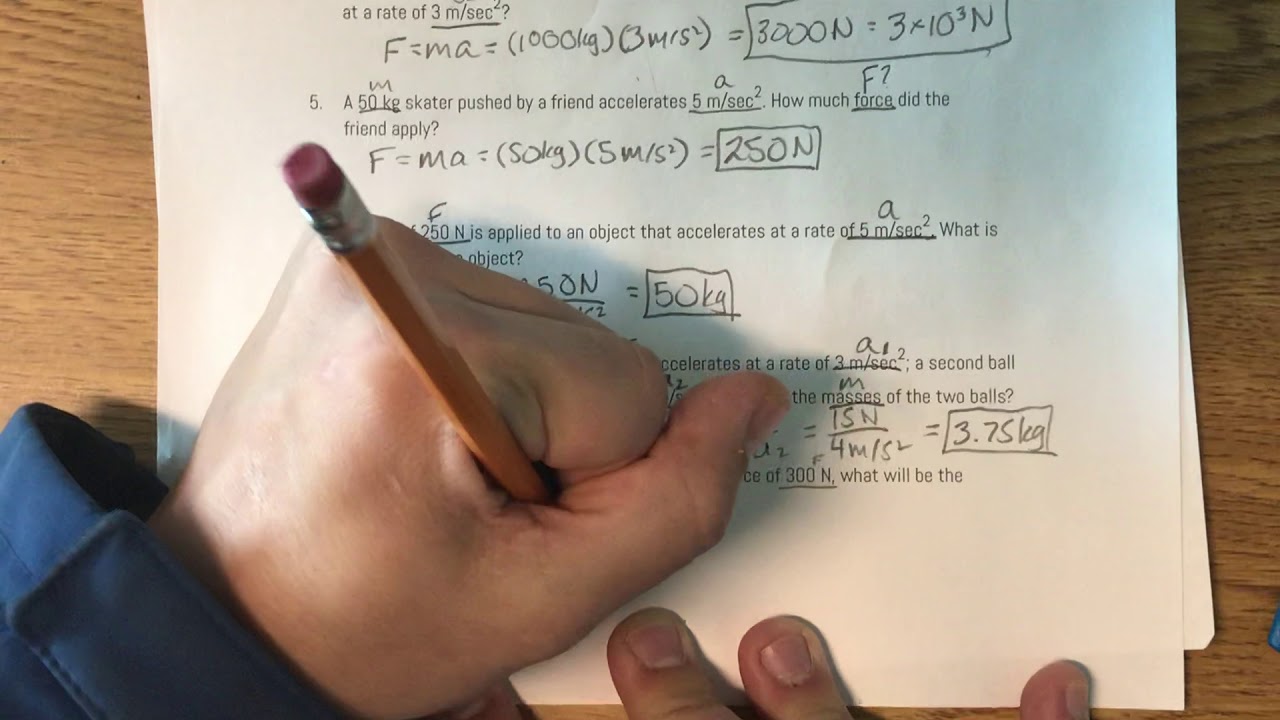 at a rate of 3 m/sec²?
F = ma = (1000kg)(3m/s²) = 3000N = 3×10³N
m a F?
5. A 50 kg skater pushed by a friend accelerates 5 m/sec². How much force did the
friend apply?
F = ma = (50kg)(5m/s²) = 250N
F a
250 N is applied to an object that accelerates at a rate of 5 m/sec². What is
object?
50N = 50kg
a₁
accelerates at a rate of 3 m/sec²; a second ball
m
the masses of the two balls?
= 15N / 4m/s² = 3.75kg
F
of 300 N, what will be the